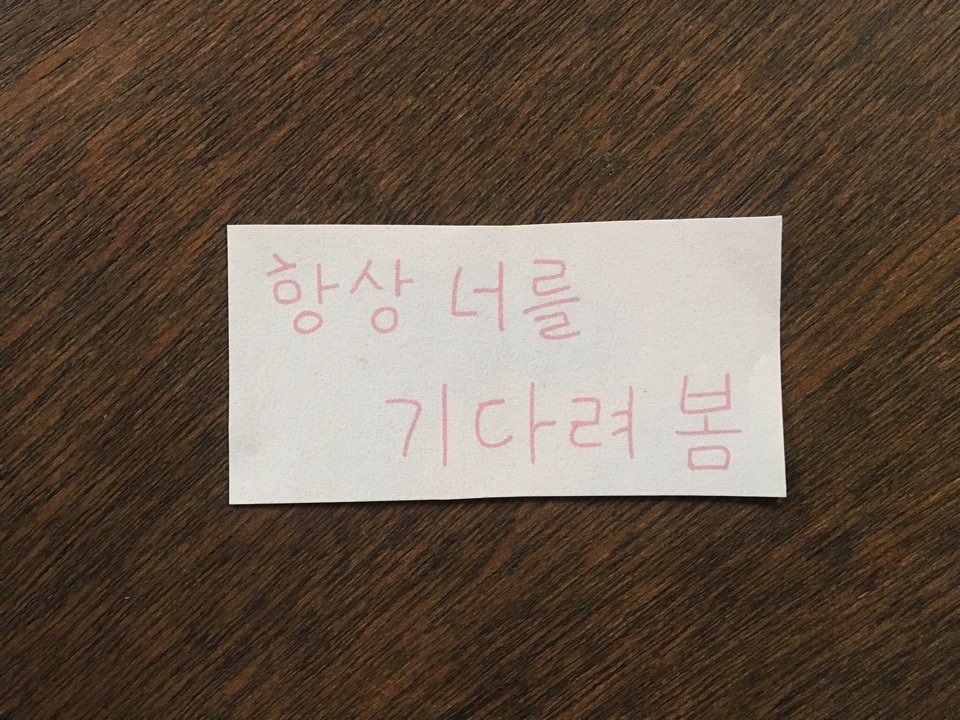 항상 너를
기다려 봄